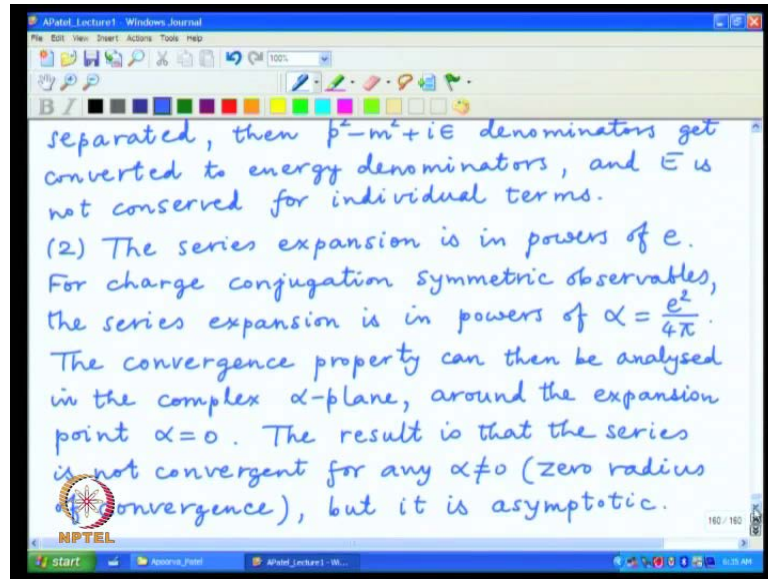 APatel_Lecture1 - Windows Journal
File Edit View Insert Actions Tools Help
100%
B I
separated, then p²-m²+iϵ denominators get
converted to energy denominators, and E is
not conserved for individual terms.
(2) The series expansion is in powers of e.
For charge conjugation symmetric observables,
the series expansion is in powers of α = e²/4π.
The convergence property can then be analysed
in the complex α-plane, around the expansion
point α=0. The result is that the series
is not convergent for any α≠0 (zero radius
of convergence), but it is asymptotic.
NPTEL
160 / 160
start Apoorva_Patel APatel_Lecture1 - Wi... 6:35 AM